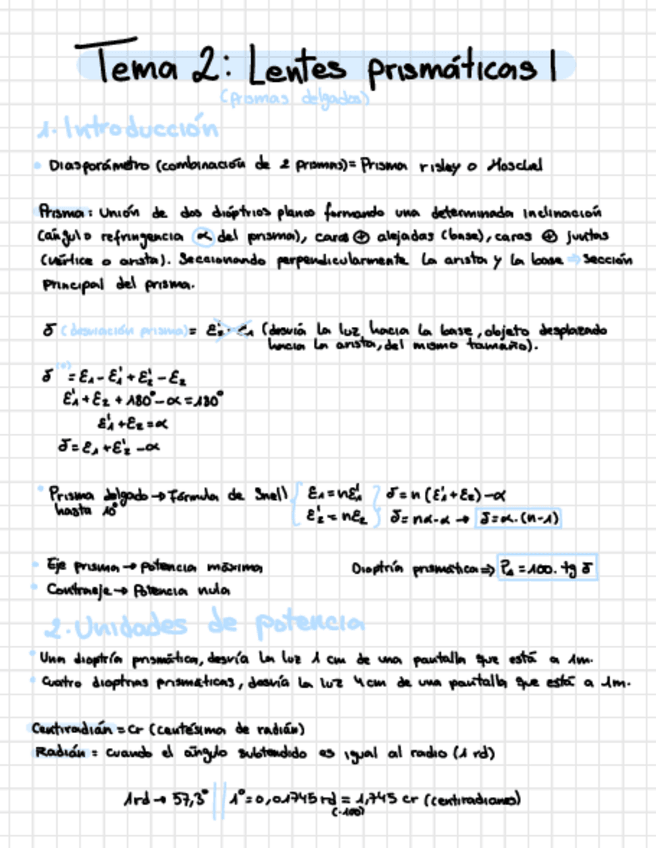 Tema 2: Lentes prismáticas I
(prismas delgados)
1. Introducción
• Diasporámetro (combinación de 2 prismas) = Prisma risley o Herschel
Prisma: Unión de dos dioptrios planos formando una determinada inclinación
(ángulo refringencia α del prisma), caras ⊕ alejadas (base), caras ⊕ juntas
(vértice o arista). Seccionando perpendicularmente la arista y la base ⇒ Sección
principal del prisma.
δ (desviación prisma) = (desvía la luz hacia la base, objeto desplazado
hacia la arista, del mismo tamaño).
δ(o) = ε₁ - ε₁' + ε₂' - ε₂
ε₁' + ε₂ + 180° - α = 180°
ε₁' + ε₂ = α
δ = ε₁ + ε₂' - α
• Prisma delgado → Fórmula de Snell { ε₁ = nε₁' } δ = n (ε₁' + ε₂) - α
hasta 10° { ε₂' = nε₂ } δ = nα - α → δ = α · (n-1)
• Eje prisma → potencia máxima Dioptría prismática ⇒ P△ = 100 · tg δ
• Contraeje → Potencia nula
2. Unidades de potencia
• Una dioptría prismática, desvía la luz 1 cm de una pantalla que está a 1m.
• Cuatro dioptrías prismáticas, desvía la luz 4 cm de una pantalla que está a 1m.
Centiradián = cr (centésima de radián)
Radián = cuando el ángulo subtendido es igual al radio (1 rd)
1rd → 57,3° || 1° = 0,01745 rd = 1,745 cr (centiradianes)
(·100)